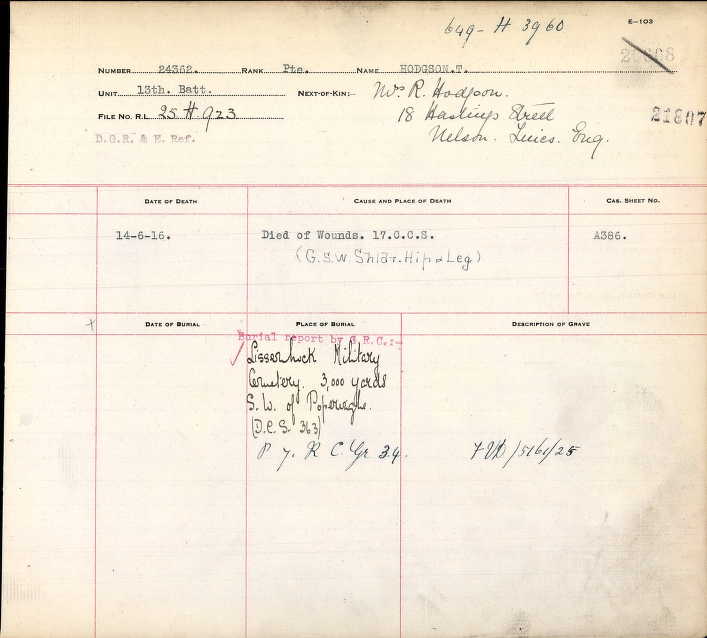 649-H 3960
E-103
NUMBER 24362. RANK Pte. NAME HODGSON.T.
UNIT 13th. Batt. NEXT-OF-KIN:- Mrs R. Hodgson.
FILE NO. R.L. 25 H. 923 18 Hastings Street
21807
D.G.R. & E. Ref. Nelson. Eng.
DATE OF DEATH CAUSE AND PLACE OF DEATH CAS. SHEET NO.
14-6-16. Died of Wounds. 17.C.C.S. A386.
(G.S.W. Shldr. Hip & Leg)
DATE OF BURIAL PLACE OF BURIAL DESCRIPTION OF GRAVE
Burial report by G.R.C.:-
Lissenhoek Military
Cemetery. 3,000 yards
S.W. of Poperinghe.
(D.C.S. 363)
P 7. R C. Gr 34.